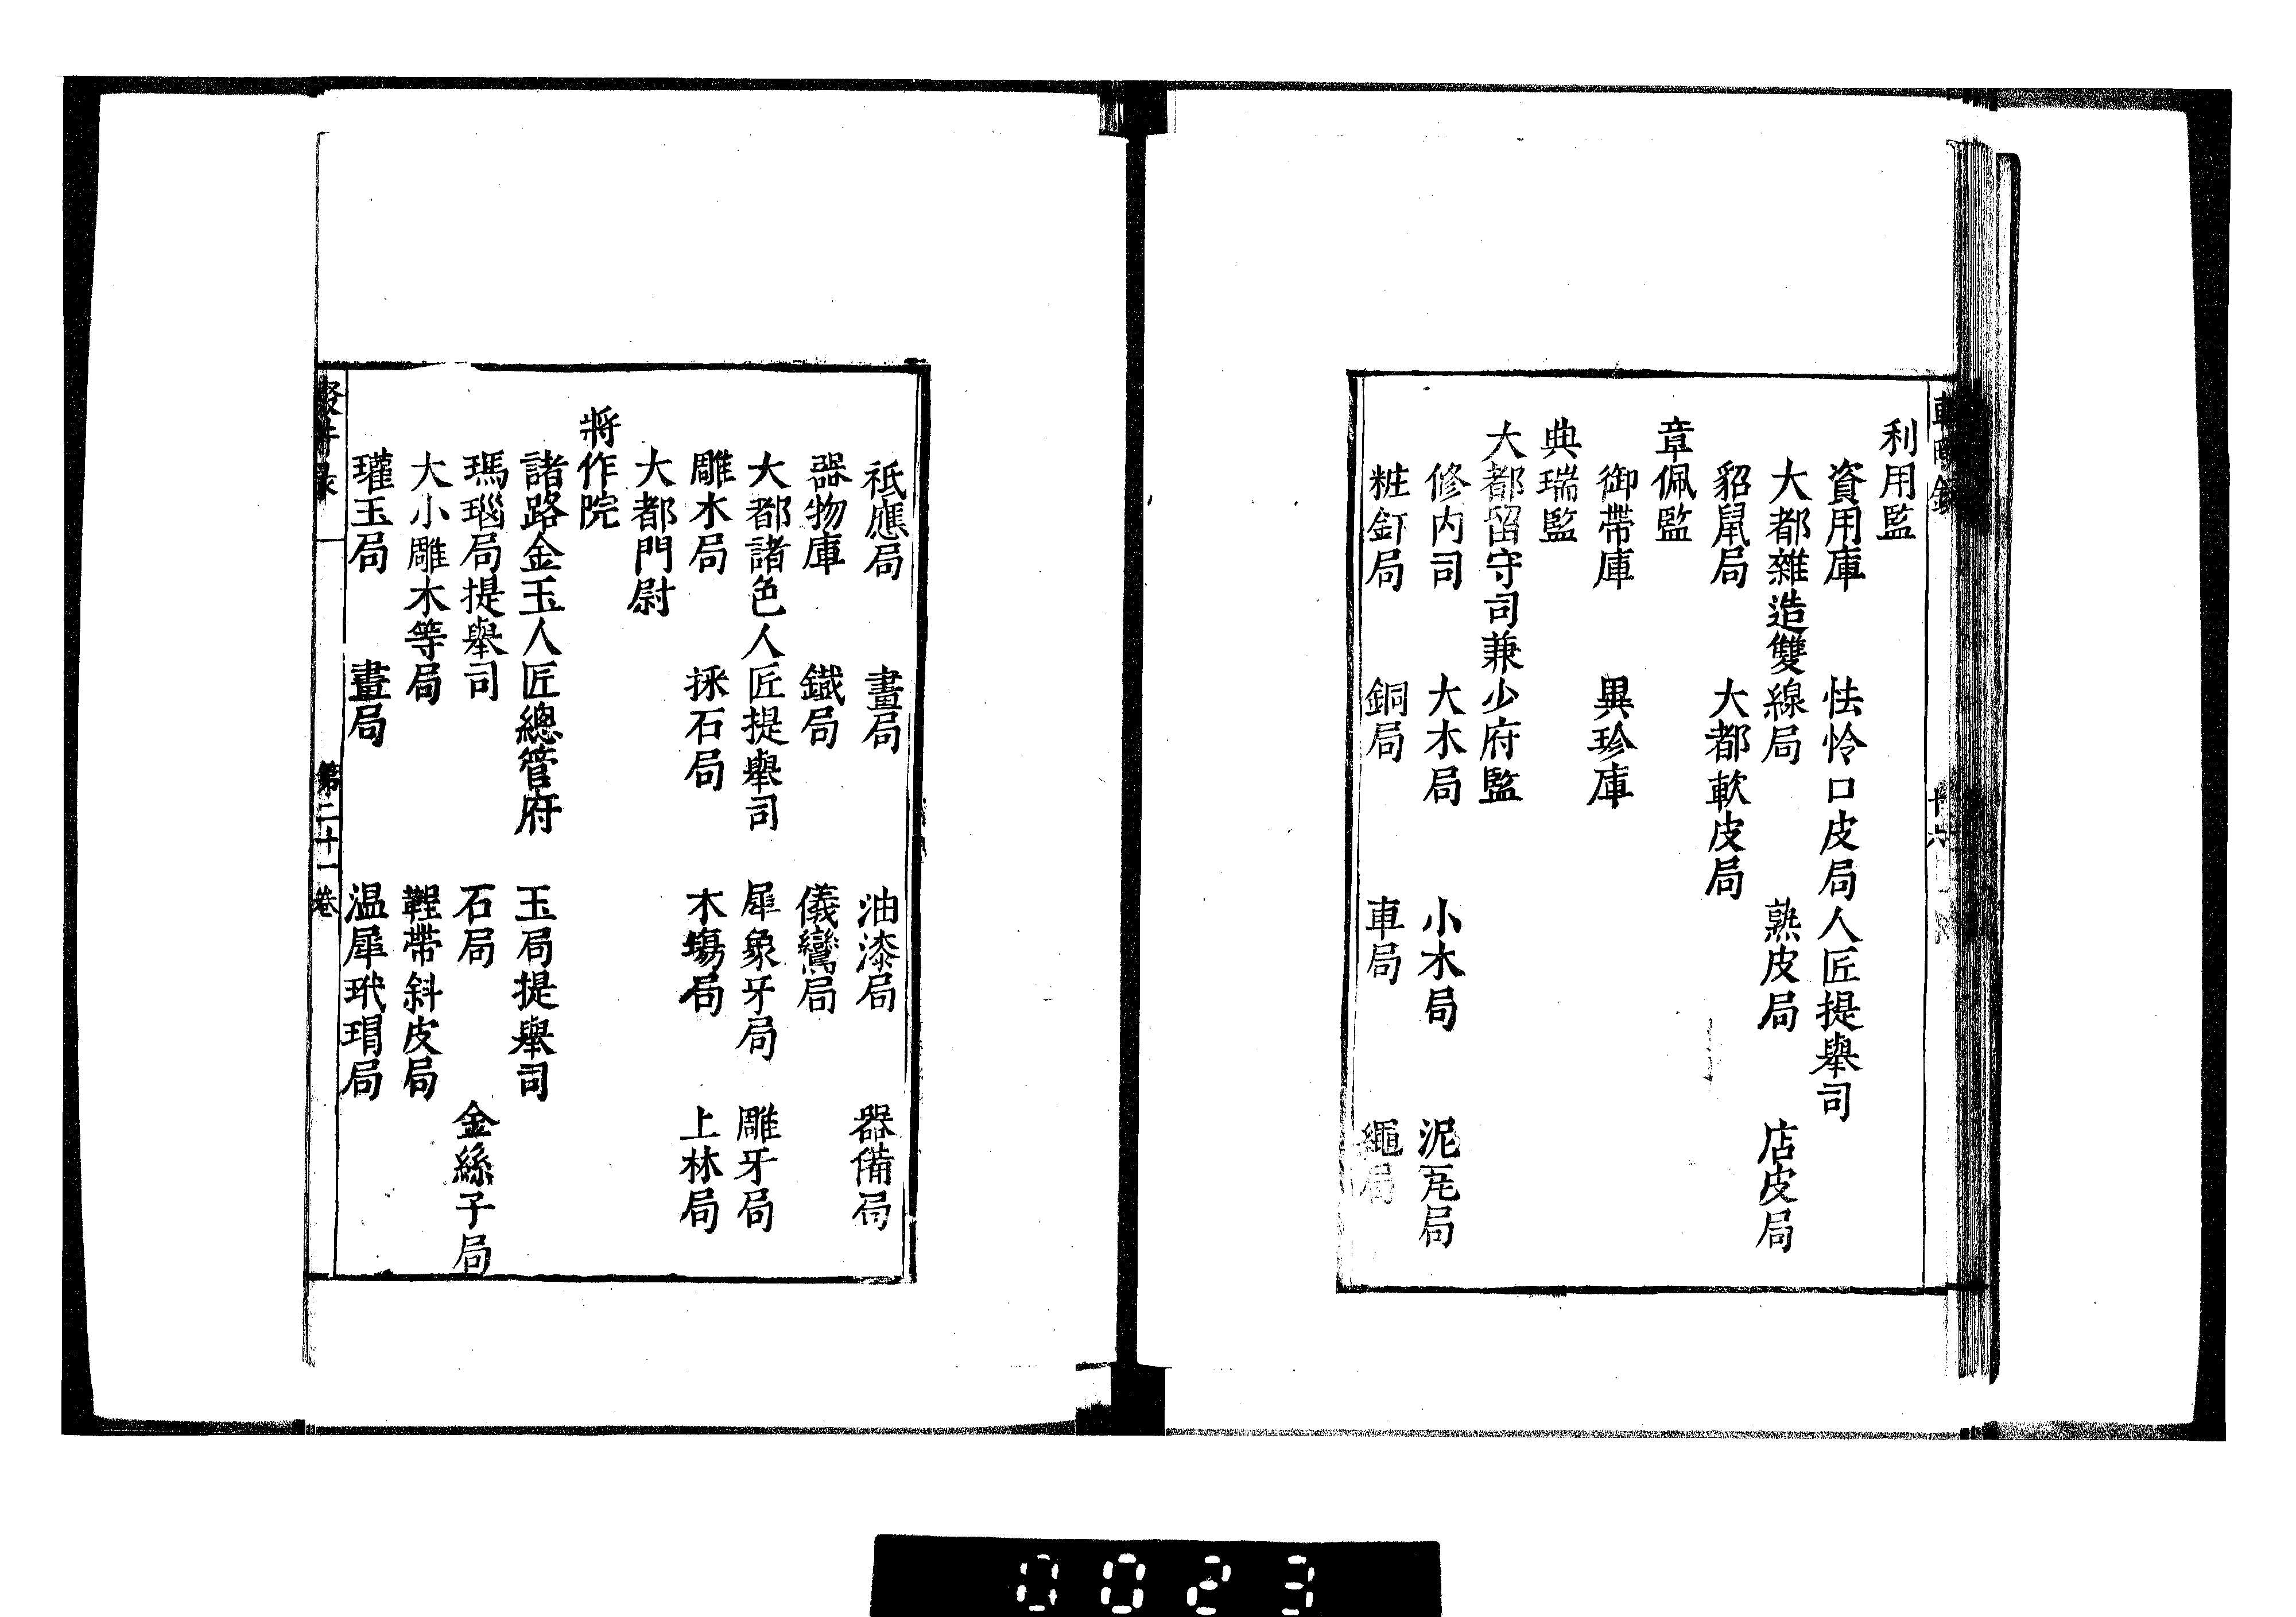 利用監
資用庫 怯怜口皮局人匠提舉司
大都雜造雙線局 熟皮局 店皮局
貂鼠局 大都軟皮局
章佩監
御帶庫 異珍庫
典瑞監
大都留守司兼少府監
修内司 大木局 小木局 泥瓦局
粧釘局 銅局 車局 繩局
祗應局 畫局 油漆局 器備局
器物庫 鐵局 儀鸞局
大都諸色人匠提舉司 犀象牙局 雕牙局
雕木局 採石局 木塲局 上林局
大都門尉
將作院
諸路金玉人匠總管府 玉局提舉司
瑪瑙局提舉司 石局 金絲子局
大小雕木等局 鞓帶斜皮局
瓘玉局 畫局 温犀玳瑁局
第二十一卷
0023